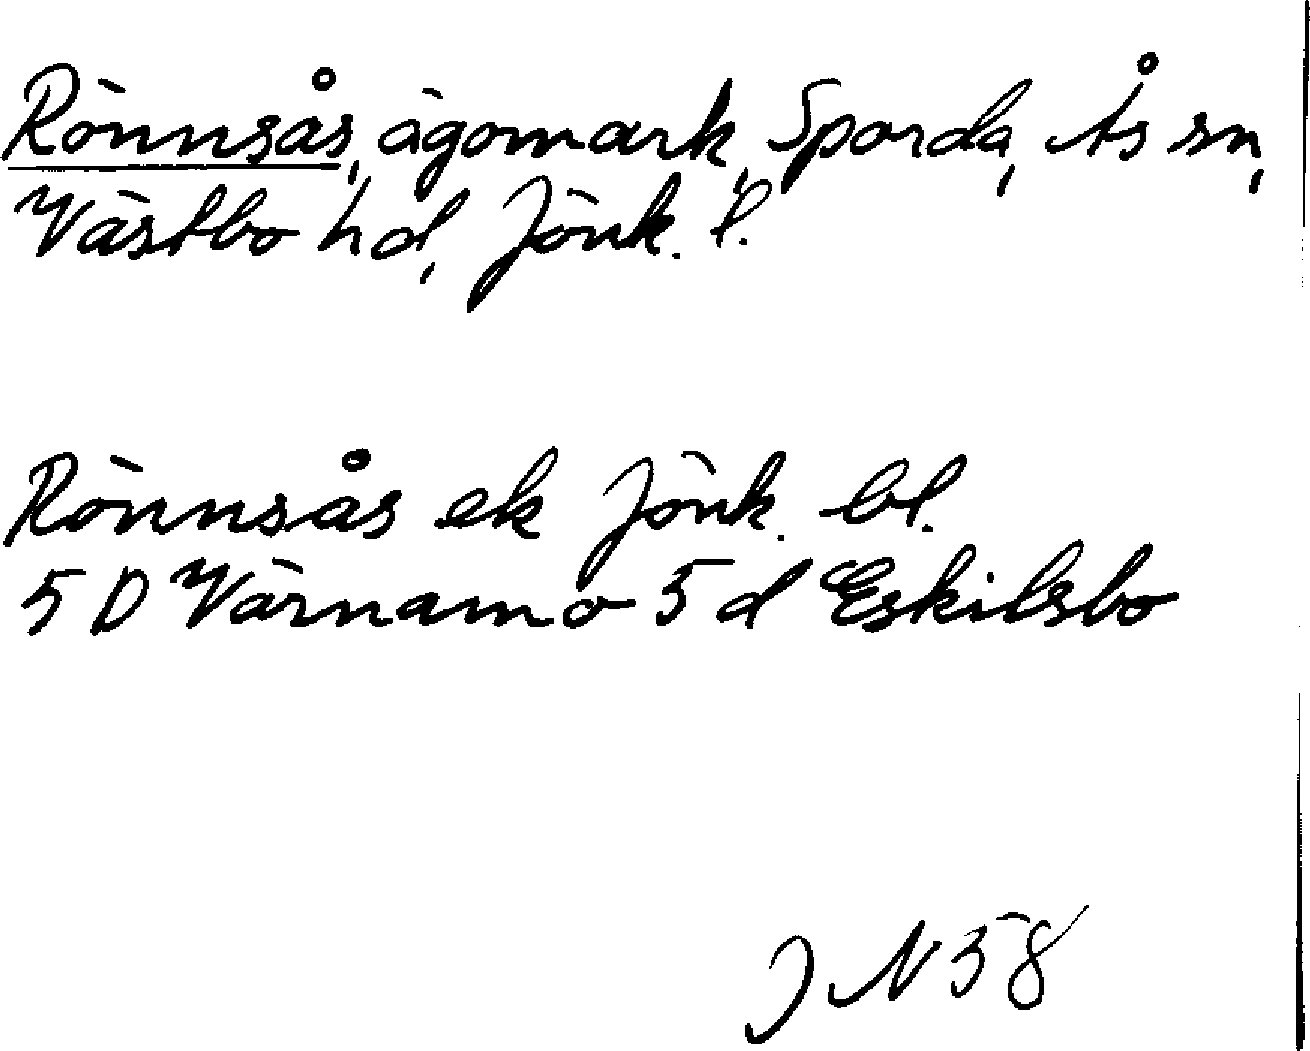 Rönnsås, ägomark, Sporda, Ås sn,
Västbo hd, Jönk. l.
Rönnsås ek Jönk. bl.
5 D Värnamo 5 d Eskilsbo
J N 58